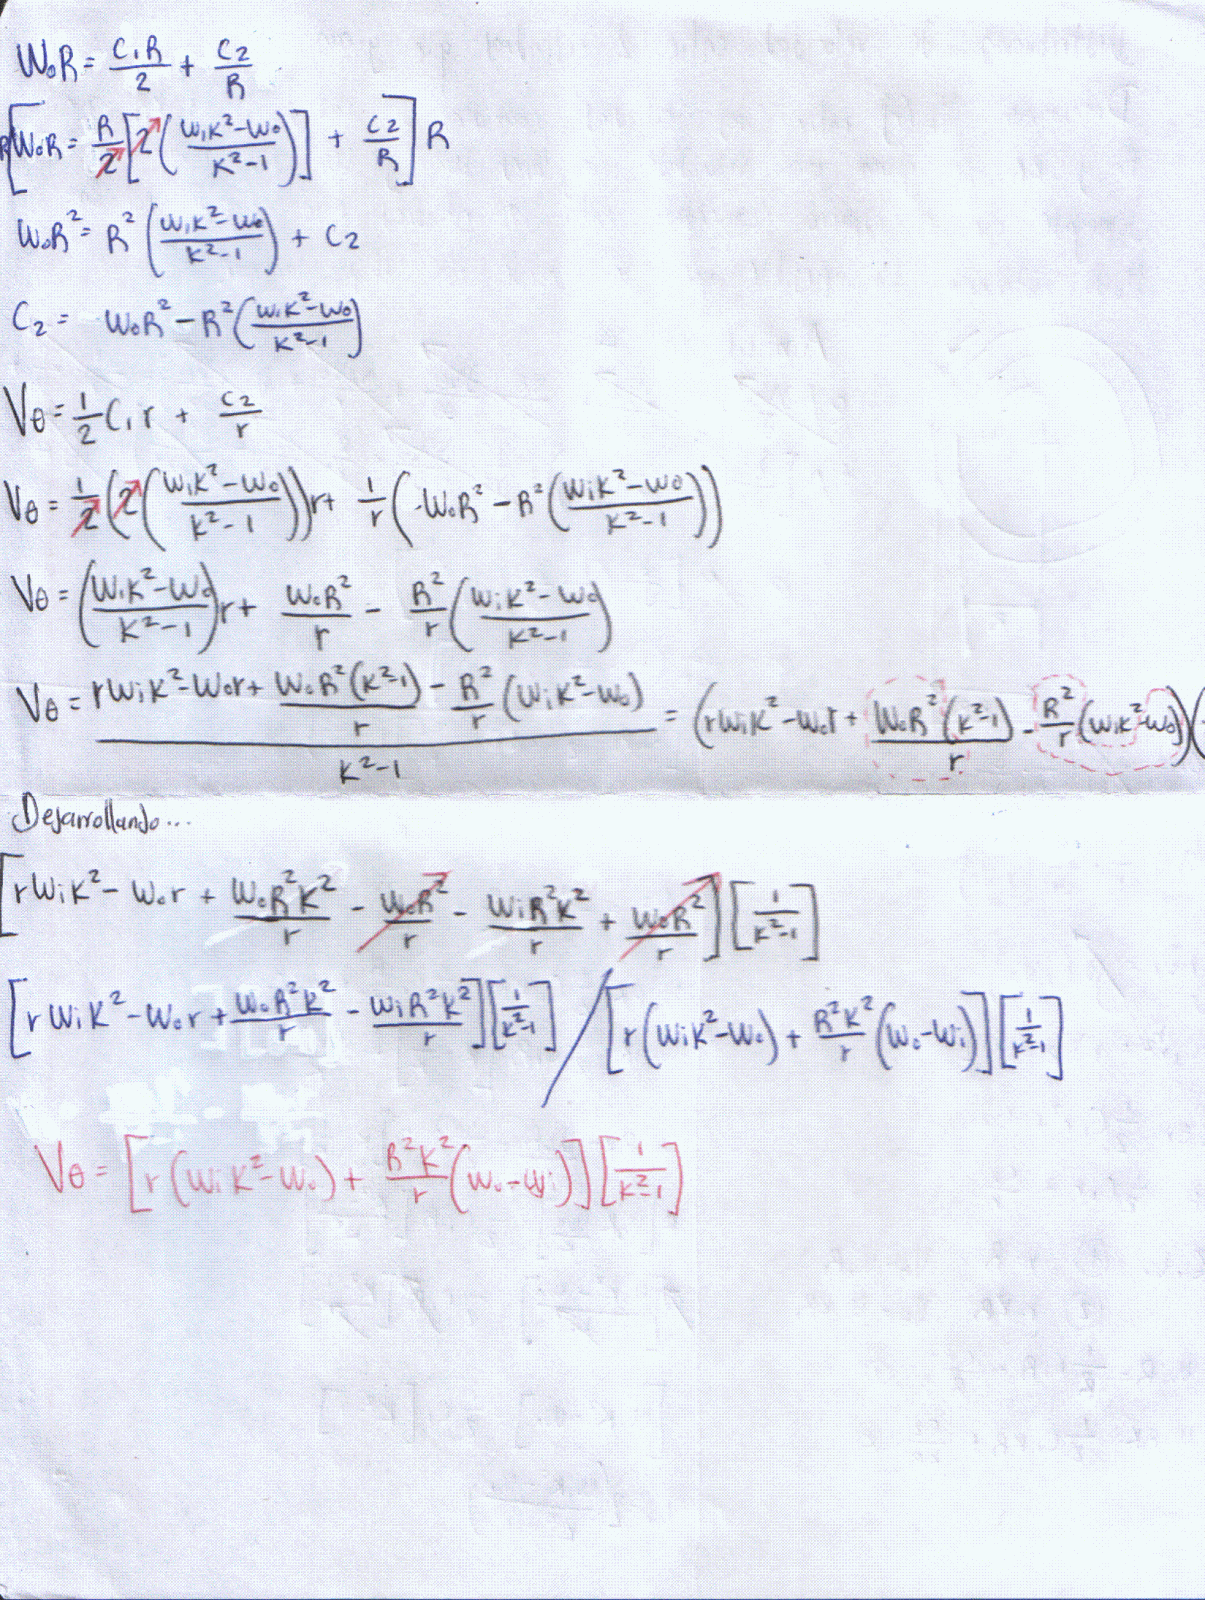 W₀R = C₁R/2 + C₂/R
R[W₀R = R/2 [2((WᵢK²-W₀)/(K²-1))] + C₂/R] R
W₀R² = R² ((WᵢK²-W₀)/(K²-1)) + C₂
C₂ = W₀R² - R² ((WᵢK²-W₀)/(K²-1))
Vθ = 1/2 C₁ r + C₂/r
Vθ = 1/2 (2((WᵢK²-W₀)/(K²-1))) r + 1/r (W₀R² - R² ((WᵢK²-W₀)/(K²-1)))
Vθ = ((WᵢK²-W₀)/(K²-1)) r + W₀R²/r - R²/r ((WᵢK²-W₀)/(K²-1))
Vθ = (rWᵢK²-W₀r + W₀R²(K²-1)/r - R²/r (WᵢK²-W₀))/(K²-1) = (rWᵢK²-W₀r + W₀R²(K²-1)/r - R²/r (WᵢK²-W₀))(
Desarrollando...
[rWᵢK² - W₀r + W₀R²K²/r - W₀R²/r - WᵢR²K²/r + W₀R²/r] [1/(K²-1)]
[rWᵢK² - W₀r + W₀R²K²/r - WᵢR²K²/r] [1/(K²-1)] / [r(WᵢK²-W₀) + R²K²/r (W₀-Wᵢ)] [1/(K²-1)]
Vθ = [r(WᵢK²-W₀) + R²K²/r (W₀-Wᵢ)] [1/(K²-1)]